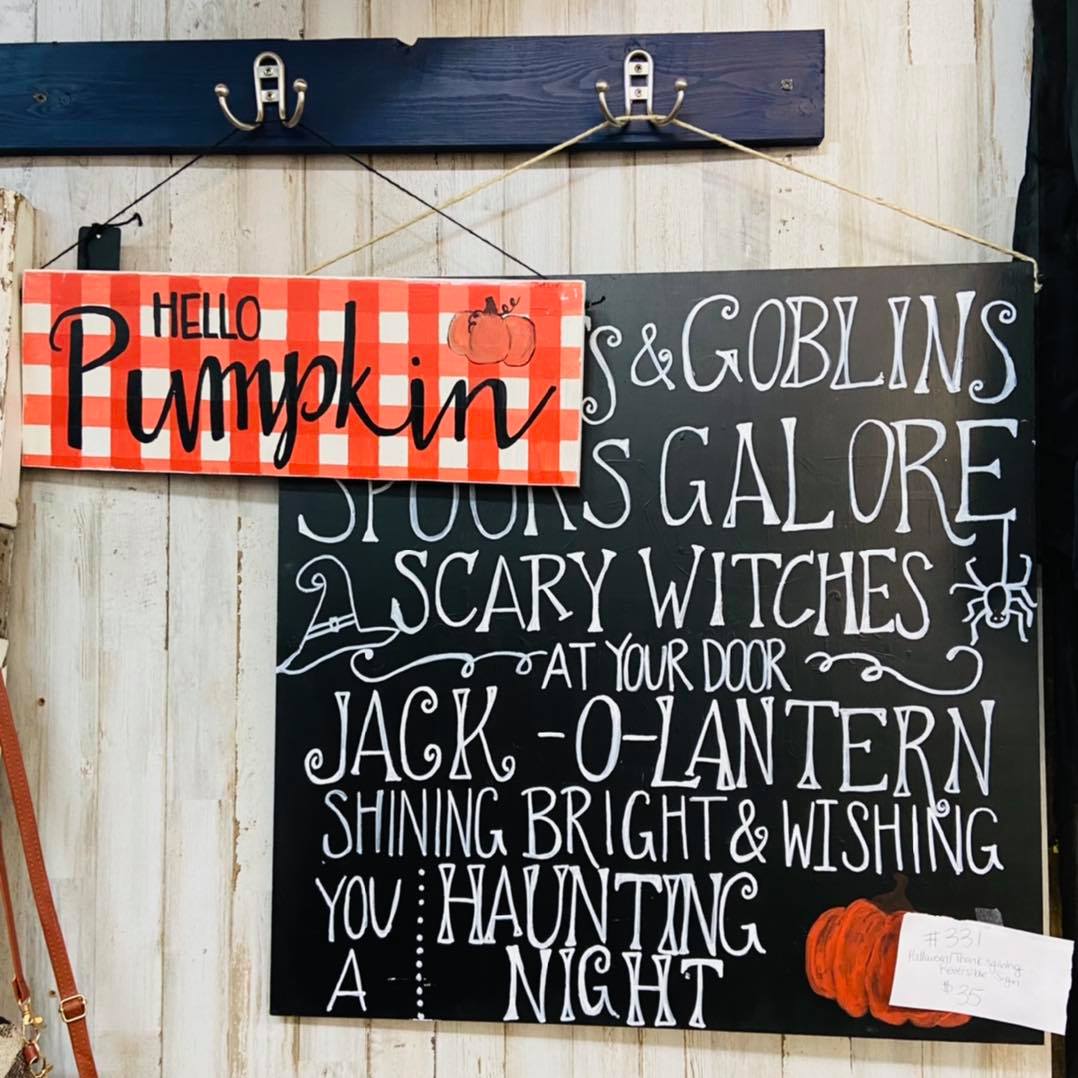 HELLO
Pumpkin
S & GOBLINS
SPOOKS GALORE
SCARY WITCHES
AT YOUR DOOR
JACK -O-LANTERN
SHINING BRIGHT & WISHING
YOU HAUNTING
A NIGHT
#331
Halloween/Thanksgiving
Reversible Sign
$35